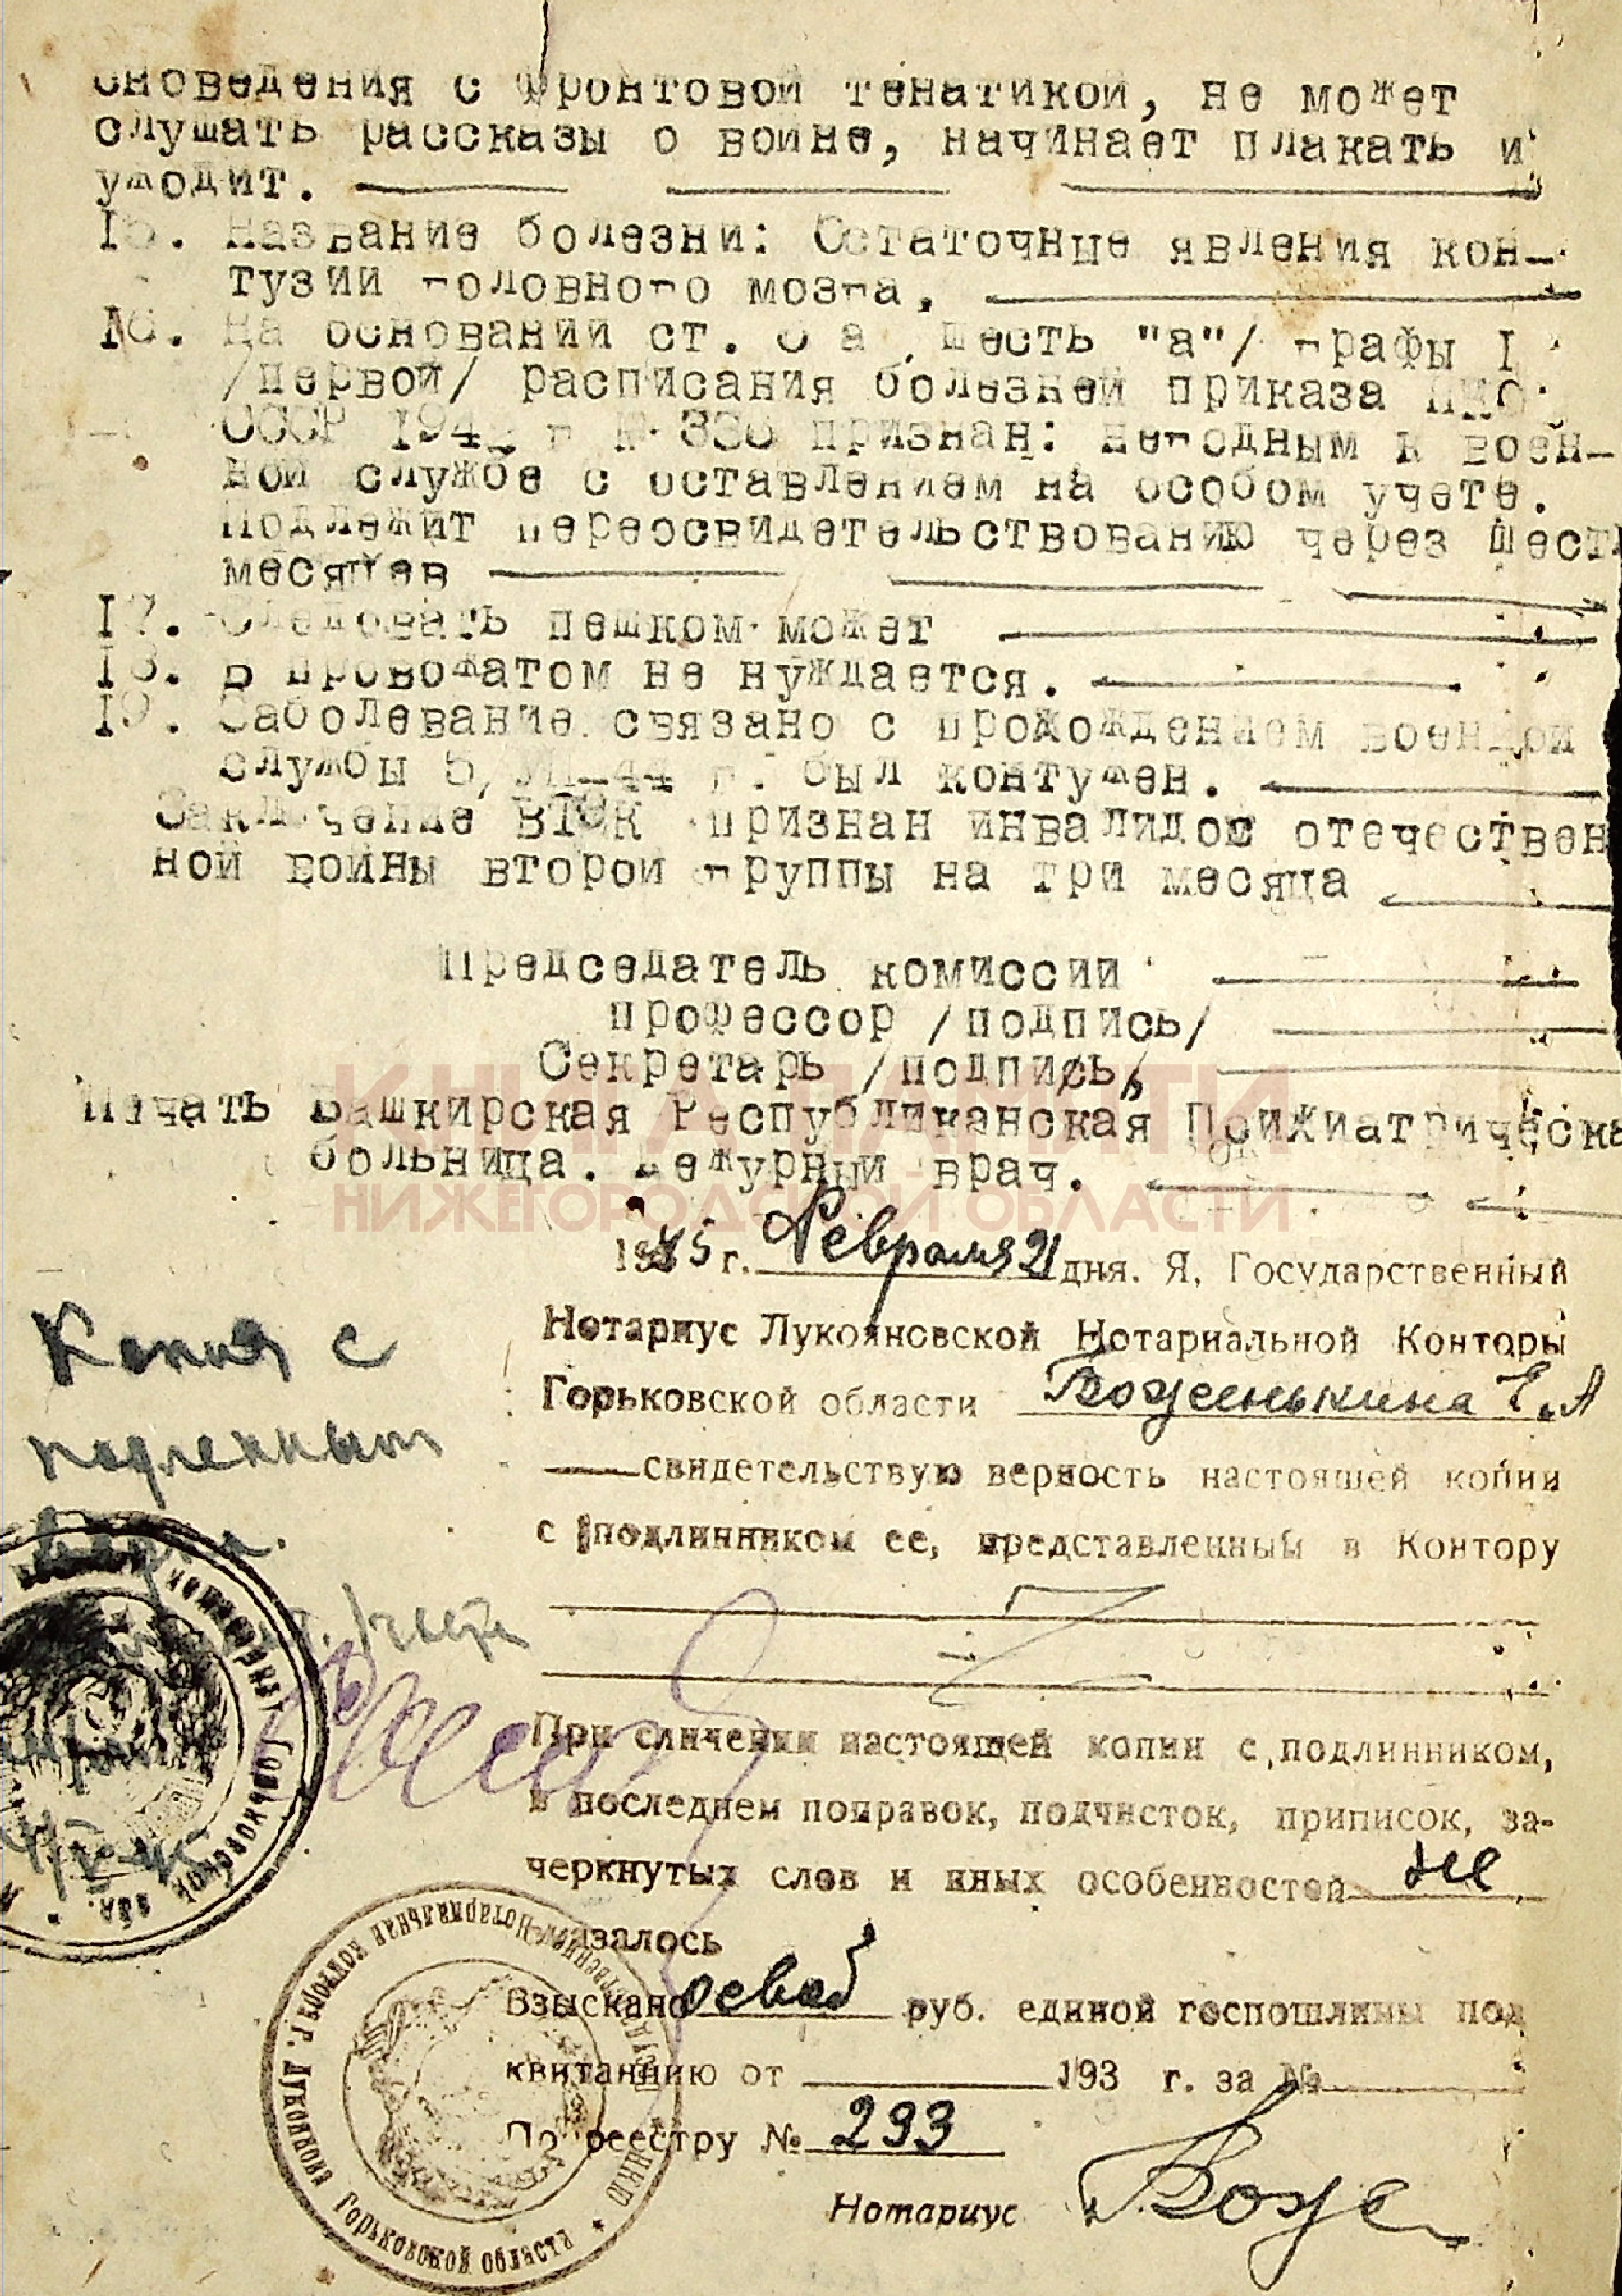 сноведения с фронтовой тенатикой, не может
слушать рассказы о войне, начинает плакать и
уходит.
15. Название болезни: Остаточные явления кон-
тузии головного мозга,
16. На основании ст. 6 а шесть "а"/ графы I
/первой/ расписания болезней приказа НКО
СССР 194 г № 336 признан: негодным к воен-
ной службе с оставлением на особом учете.
Подлежит переосвидетельствованию через шесть
месяцев
17. Следовать пешком может
18. В провожатом не нуждается.
19. Заболевание связано с прохождением военной
службы 5/VII-44 г. был контужен.
Заключение ВТЭК признан инвалидос отечествен
ной войны второй группы на три месяца
Председатель комиссии
профессор /подпись/
Секретарь /подпись/
Печать Башкирская Республиканская Псижиатрическа
больница. Дежурный врач.
КНИГА ПАМЯТИ
НИЖЕГОРОДСКОЙ ОБЛАСТИ
1945 г. Февраля 21 дня. Я, Государственный
Нотариус Лукояновской Нотариальной Конторы
Горьковской области Боженькина Е.А
свидетельствую верность настоящей копии
с подлинником ее, представленный в Контору
Копия с
подленным
верна.
При сличении настоящей копии с подлинником,
в последнем поправок, подчисток, приписок, за-
черкнутых слов и иных особенностей не
азалось
Взыскано руб. единой госпошлины под
квитанцию от 193 г. за №
По реестру № 293
Нотариус Боже
Горьковской обл.
контора г. Лукоянова Горьковской области